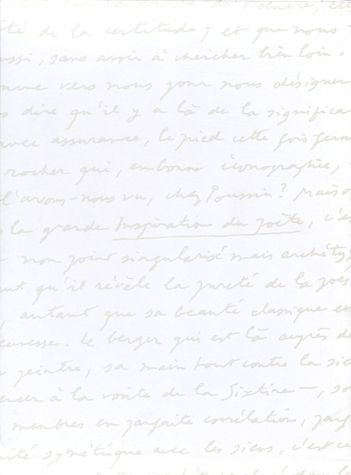 té de la certitude ; et que nous
ussi, sans avoir à chercher bien loin.
comme vers nous pour nous désigner
dire qu'il y a là de la significa
avec assurance, le pied cette fois ferm
rocher qui, en bonne iconographie,
l'avons-nous vu, chez Poussin ? Mais
la grande Inspiration du poète, c'es
non point singularisé mais archéty
qu'il révèle la pureté de la poés
, autant que sa beauté classique en
. Le berger qui est là auprès de
peintre, sa main tout contre la sie
à la voûte de la Sixtine –, so
membres en parfaite corrélation, parf
symétrique avec les siens, c'est ce